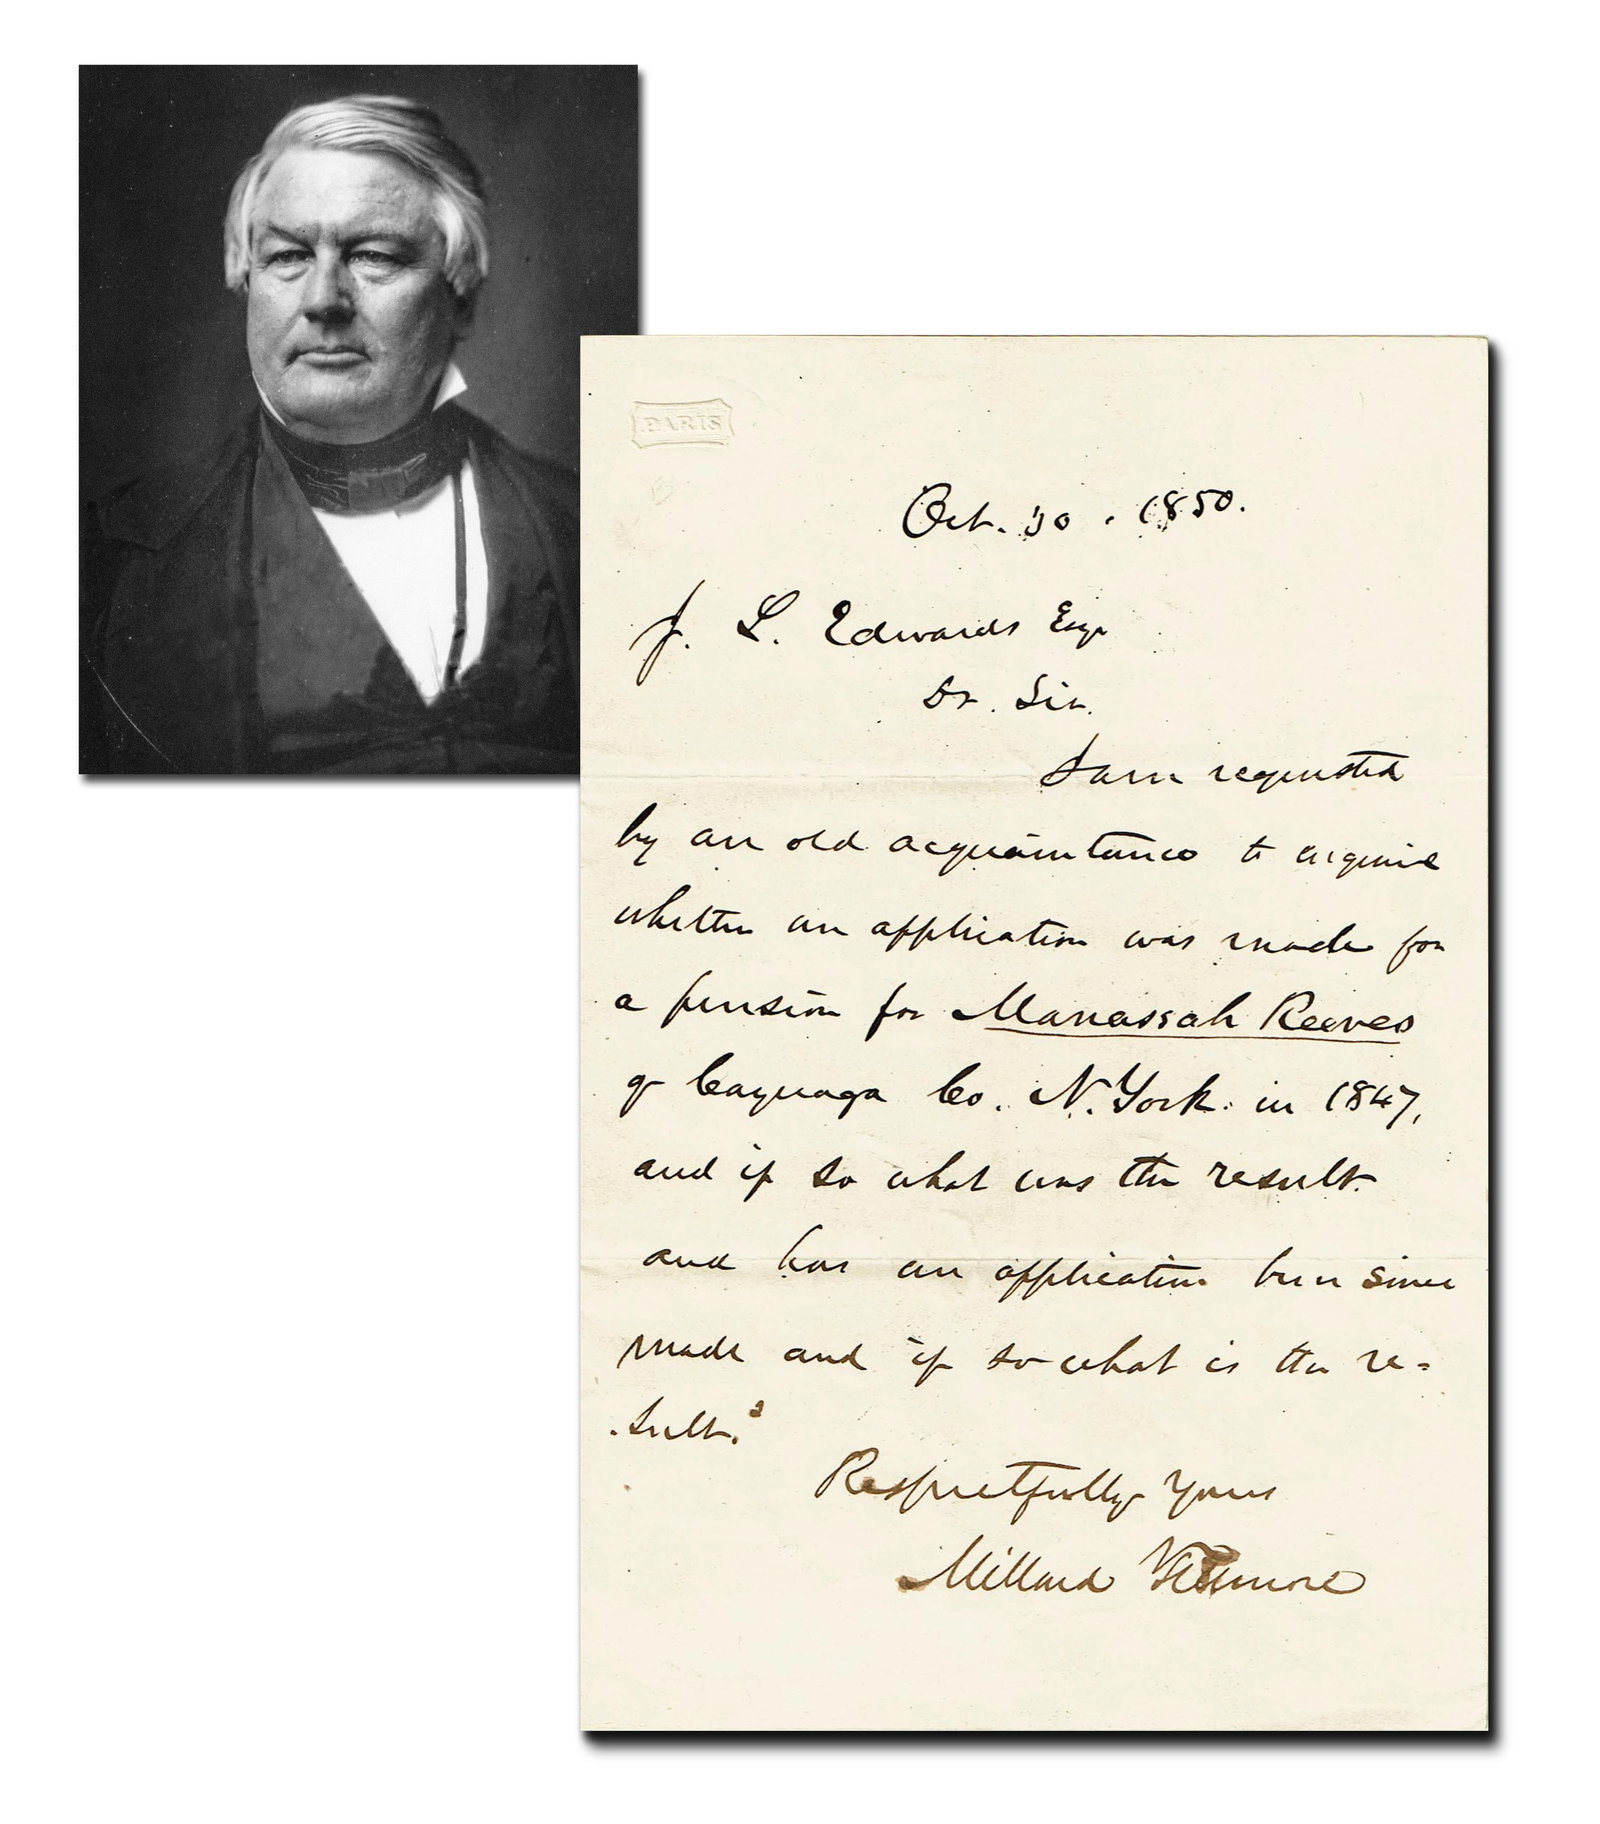 PARIS
Oct. 30. 1850.
J. L. Edwards Esqr
Dr. Sir.
I am requested
by an old acquaintance to enquire
whether an application was made for
a pension for Manassah Reeves
of Cayuaga Co. N. York. in 1847,
and if so what was the result
and has an application been since
made and if so what is the re=
sult.?
Respectfully Yours
Millard Fillmore